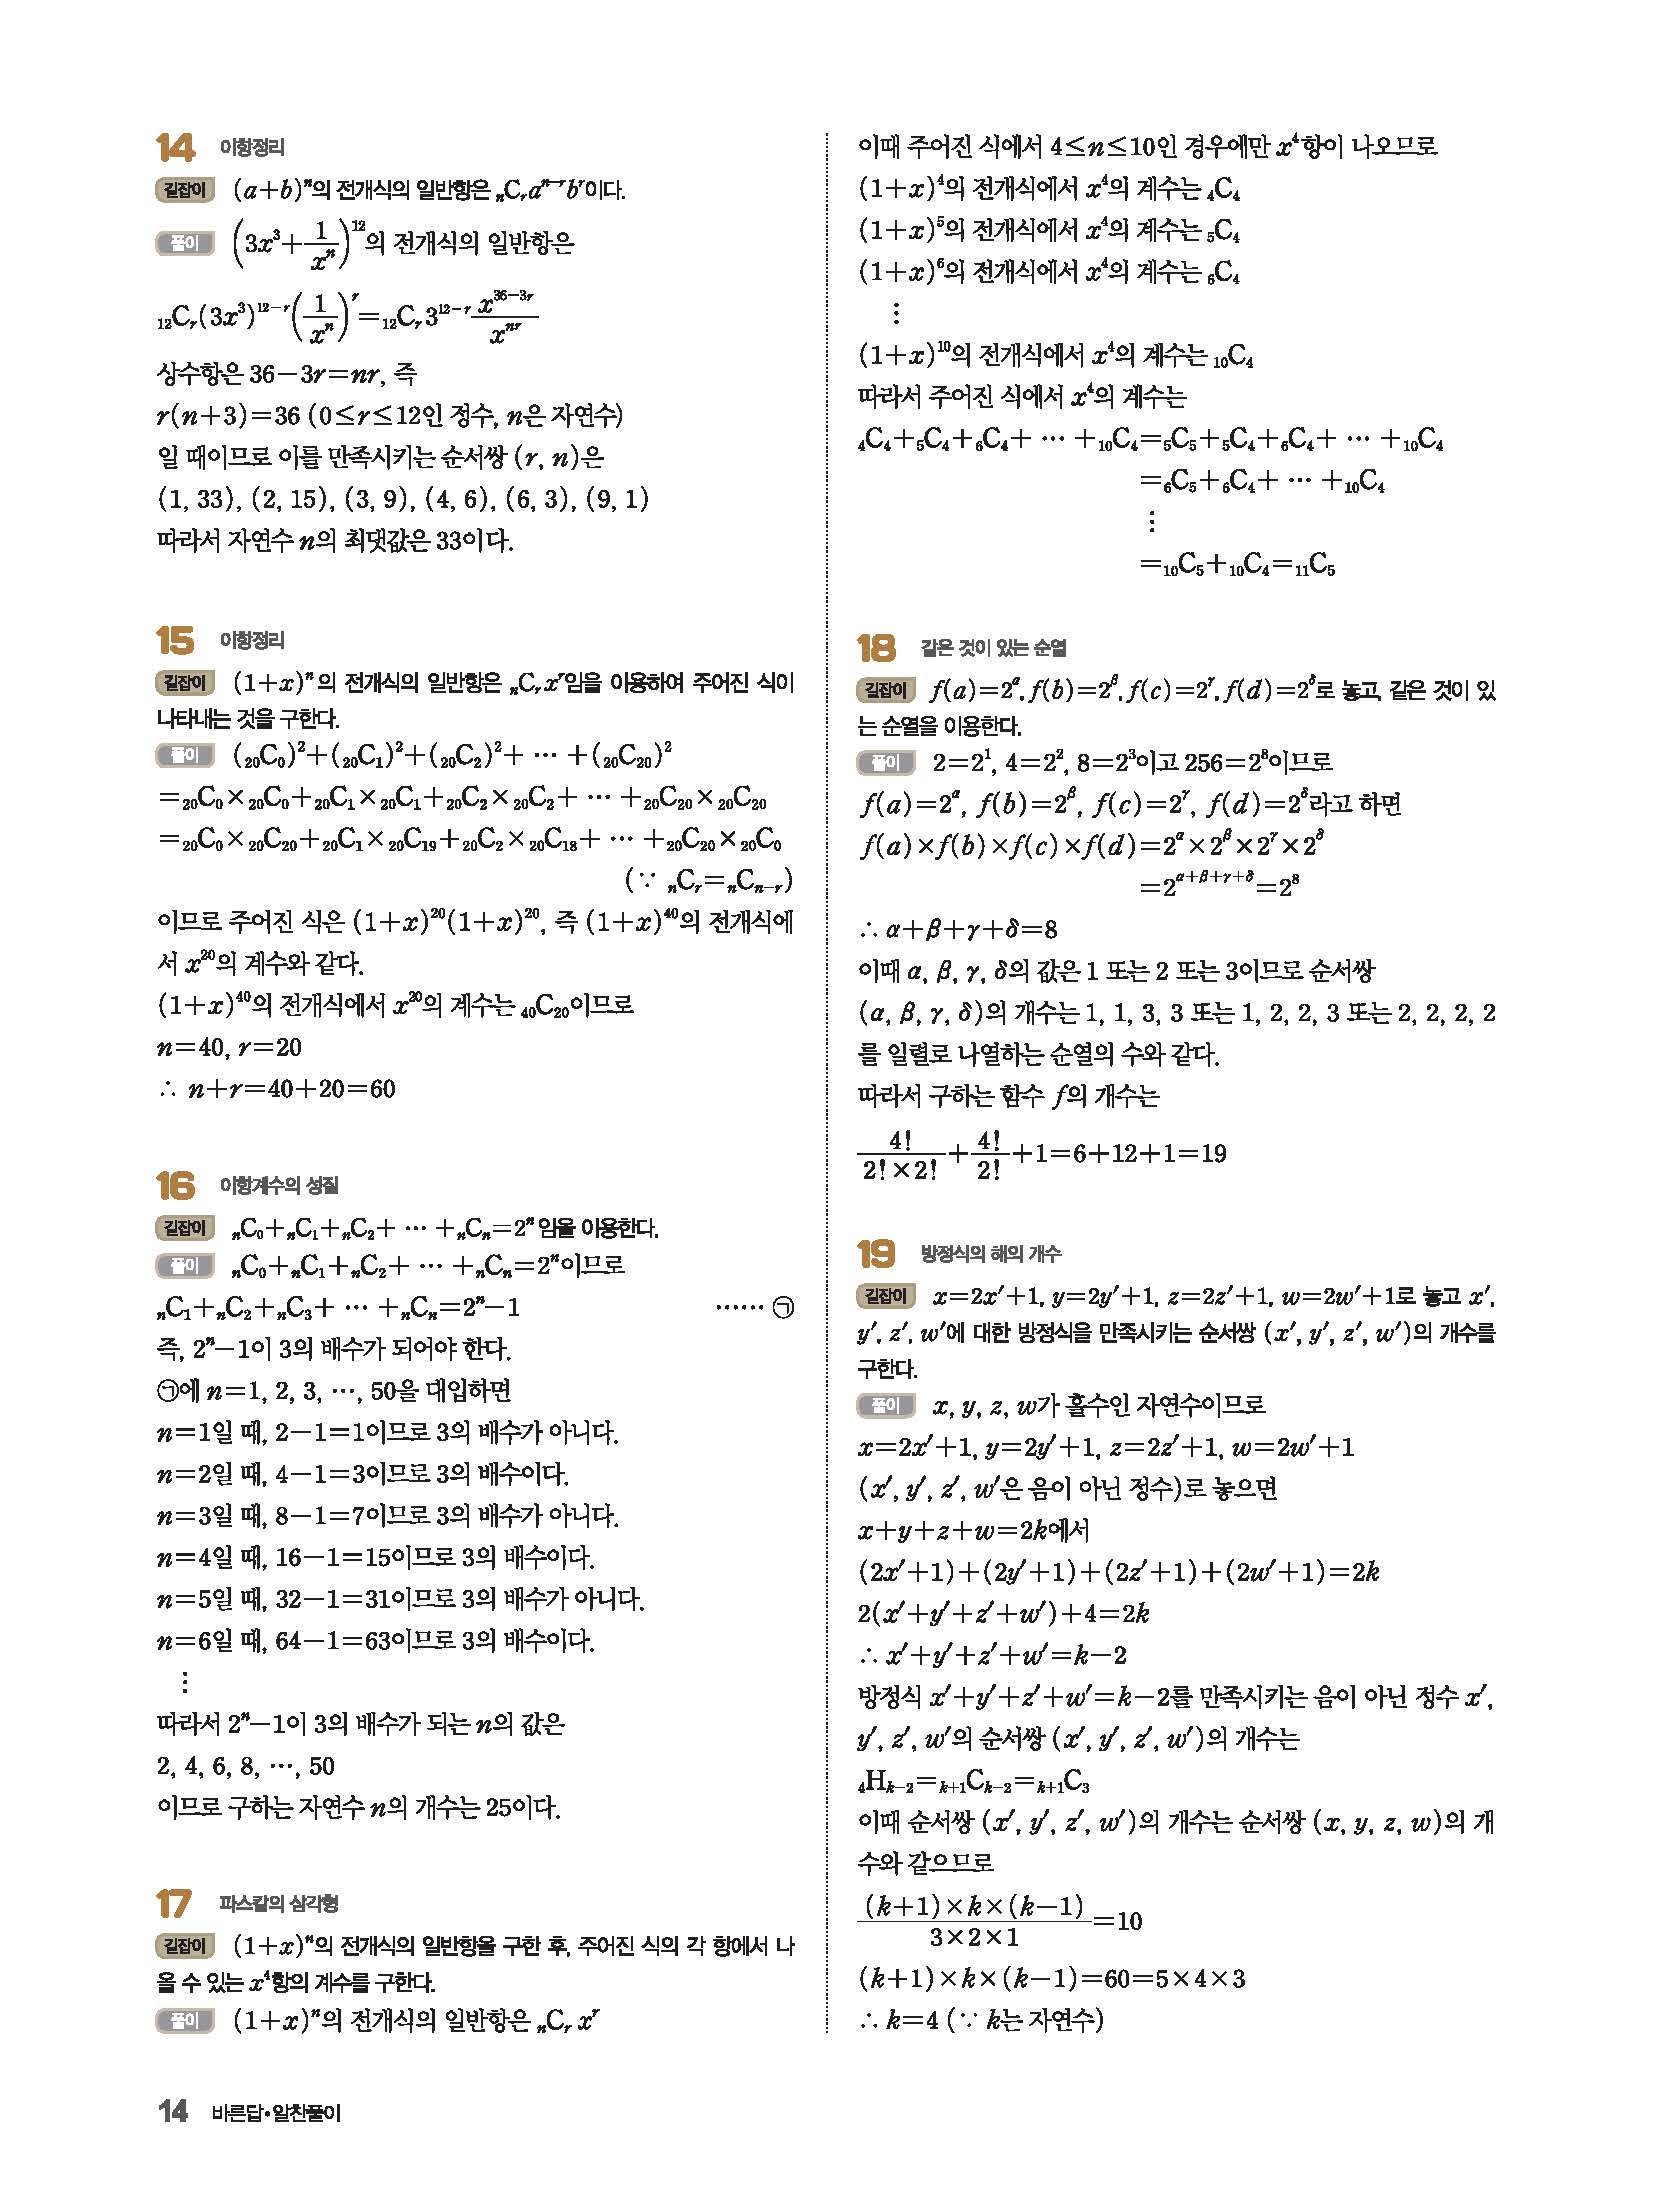 14 이항정리
길잡이 (a+b)ⁿ의 전개식의 일반항은 ₙCᵣaⁿ⁻ʳbʳ이다.
풀이 (3x³+1/xⁿ)¹²의 전개식의 일반항은
₁₂Cᵣ(3x³)¹²⁻ʳ(1/xⁿ)ʳ=₁₂Cᵣ3¹²⁻ʳ x³⁶⁻³ʳ/xⁿʳ
상수항은 36-3r=nr, 즉
r(n+3)=36 (0≤r≤12인 정수, n은 자연수)
일 때이므로 이를 만족시키는 순서쌍 (r, n)은
(1, 33), (2, 15), (3, 9), (4, 6), (6, 3), (9, 1)
따라서 자연수 n의 최댓값은 33이다.
15 이항정리
길잡이 (1+x)ⁿ의 전개식의 일반항은 ₙCᵣxʳ임을 이용하여 주어진 식이
나타내는 것을 구한다.
풀이 (₂₀C₀)²+(₂₀C₁)²+(₂₀C₂)²+ ⋯ +(₂₀C₂₀)²
=₂₀C₀×₂₀C₀+₂₀C₁×₂₀C₁+₂₀C₂×₂₀C₂+ ⋯ +₂₀C₂₀×₂₀C₂₀
=₂₀C₀×₂₀C₂₀+₂₀C₁×₂₀C₁₉+₂₀C₂×₂₀C₁₈+ ⋯ +₂₀C₂₀×₂₀C₀
(∵ ₙCᵣ=ₙCₙ₋ᵣ)
이므로 주어진 식은 (1+x)²⁰(1+x)²⁰, 즉 (1+x)⁴⁰의 전개식에
서 x²⁰의 계수와 같다.
(1+x)⁴⁰의 전개식에서 x²⁰의 계수는 ₄₀C₂₀이므로
n=40, r=20
∴ n+r=40+20=60
16 이항계수의 성질
길잡이 ₙC₀+ₙC₁+ₙC₂+ ⋯ +ₙCₙ=2ⁿ임을 이용한다.
풀이 ₙC₀+ₙC₁+ₙC₂+ ⋯ +ₙCₙ=2ⁿ이므로
ₙC₁+ₙC₂+ₙC₃+ ⋯ +ₙCₙ=2ⁿ-1 ⋯⋯ ㉠
즉, 2ⁿ-1이 3의 배수가 되어야 한다.
㉠에 n=1, 2, 3, ⋯, 50을 대입하면
n=1일 때, 2-1=1이므로 3의 배수가 아니다.
n=2일 때, 4-1=3이므로 3의 배수이다.
n=3일 때, 8-1=7이므로 3의 배수가 아니다.
n=4일 때, 16-1=15이므로 3의 배수이다.
n=5일 때, 32-1=31이므로 3의 배수가 아니다.
n=6일 때, 64-1=63이므로 3의 배수이다.
⋮
따라서 2ⁿ-1이 3의 배수가 되는 n의 값은
2, 4, 6, 8, ⋯, 50
이므로 구하는 자연수 n의 개수는 25이다.
17 파스칼의 삼각형
길잡이 (1+x)ⁿ의 전개식의 일반항을 구한 후, 주어진 식의 각 항에서 나
올 수 있는 x⁴항의 계수를 구한다.
풀이 (1+x)ⁿ의 전개식의 일반항은 ₙCᵣ xʳ
이때 주어진 식에서 4≤n≤10인 경우에만 x⁴항이 나오므로
(1+x)⁴의 전개식에서 x⁴의 계수는 ₄C₄
(1+x)⁵의 전개식에서 x⁴의 계수는 ₅C₄
(1+x)⁶의 전개식에서 x⁴의 계수는 ₆C₄
⋮
(1+x)¹⁰의 전개식에서 x⁴의 계수는 ₁₀C₄
따라서 주어진 식에서 x⁴의 계수는
₄C₄+₅C₄+₆C₄+ ⋯ +₁₀C₄=₅C₅+₅C₄+₆C₄+ ⋯ +₁₀C₄
=₆C₅+₆C₄+ ⋯ +₁₀C₄
⋮
=₁₀C₅+₁₀C₄=₁₁C₅
18 같은 것이 있는 순열
길잡이 f(a)=2^α, f(b)=2^β, f(c)=2^γ, f(d)=2^δ로 놓고, 같은 것이 있
는 순열을 이용한다.
풀이 2=2¹, 4=2², 8=2³이고 256=2⁸이므로
f(a)=2^α, f(b)=2^β, f(c)=2^γ, f(d)=2^δ라고 하면
f(a)×f(b)×f(c)×f(d)=2^α×2^β×2^γ×2^δ
=2^(α+β+γ+δ)=2⁸
∴ α+β+γ+δ=8
이때 α, β, γ, δ의 값은 1 또는 2 또는 3이므로 순서쌍
(α, β, γ, δ)의 개수는 1, 1, 3, 3 또는 1, 2, 2, 3 또는 2, 2, 2, 2
를 일렬로 나열하는 순열의 수와 같다.
따라서 구하는 함수 f의 개수는
4!/(2!×2!)+4!/2!+1=6+12+1=19
19 방정식의 해의 개수
길잡이 x=2x′+1, y=2y′+1, z=2z′+1, w=2w′+1로 놓고 x′,
y′, z′, w′에 대한 방정식을 만족시키는 순서쌍 (x′, y′, z′, w′)의 개수를
구한다.
풀이 x, y, z, w가 홀수인 자연수이므로
x=2x′+1, y=2y′+1, z=2z′+1, w=2w′+1
(x′, y′, z′, w′은 음이 아닌 정수)로 놓으면
x+y+z+w=2k에서
(2x′+1)+(2y′+1)+(2z′+1)+(2w′+1)=2k
2(x′+y′+z′+w′)+4=2k
∴ x′+y′+z′+w′=k-2
방정식 x′+y′+z′+w′=k-2를 만족시키는 음이 아닌 정수 x′,
y′, z′, w′의 순서쌍 (x′, y′, z′, w′)의 개수는
₄Hₖ₋₂=ₖ₊₁Cₖ₋₂=ₖ₊₁C₃
이때 순서쌍 (x′, y′, z′, w′)의 개수는 순서쌍 (x, y, z, w)의 개
수와 같으므로
(k+1)×k×(k-1)/(3×2×1)=10
(k+1)×k×(k-1)=60=5×4×3
∴ k=4 (∵ k는 자연수)
14 바른답•알찬풀이